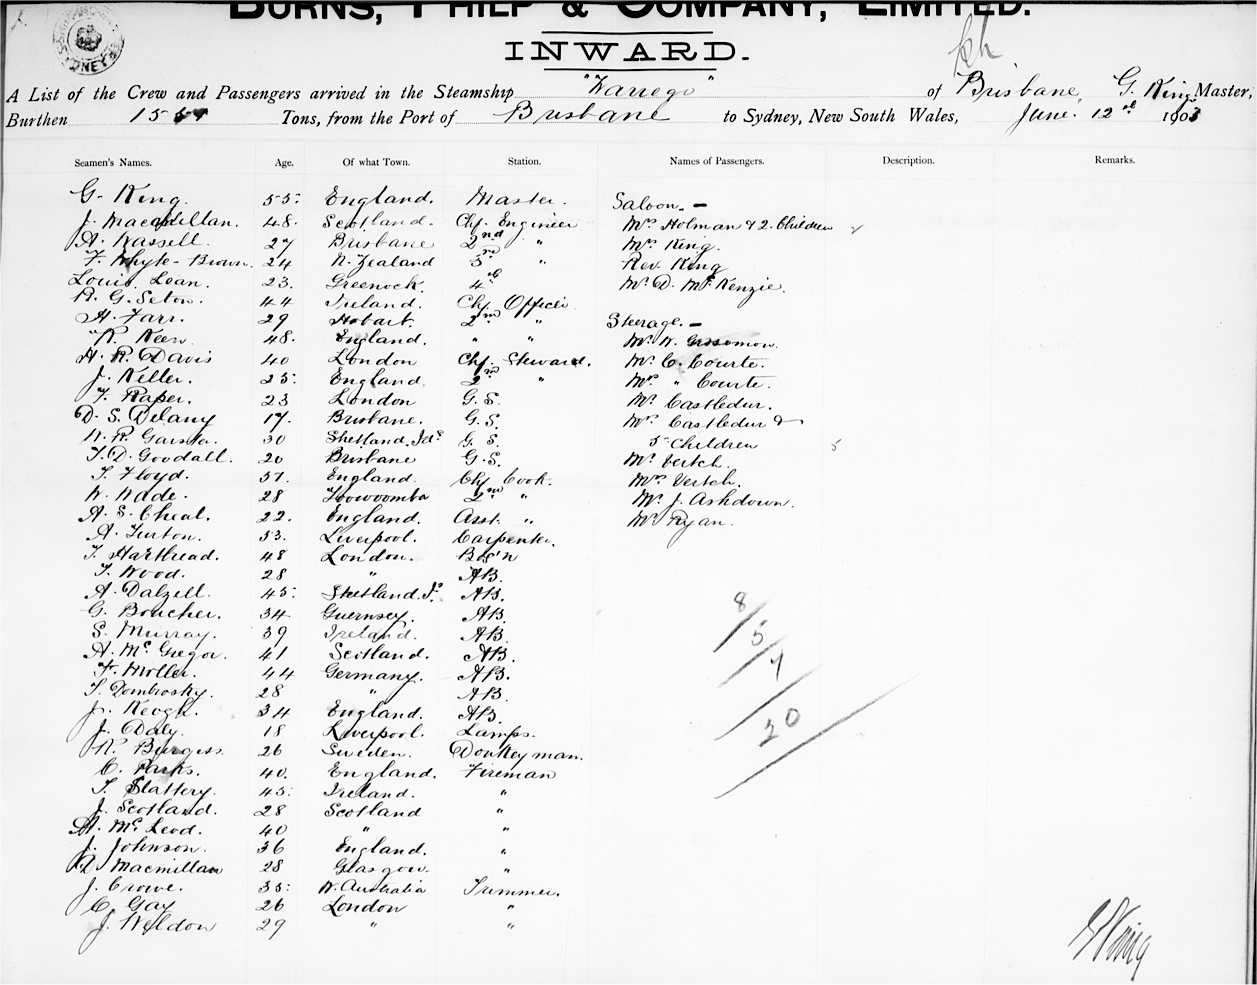 BURNS, PHILP & COMPANY, LIMITED.
INWARD.
A List of the Crew and Passengers arrived in the Steamship "Warrego" of Brisbane, G. King Master,
Burthen Tons, from the Port of Brisbane to Sydney, New South Wales, June. 12th 1903
Seamen's Names. Age. Of what Town. Station. Names of Passengers. Description. Remarks.
G. King. 55. England. Master.
J. Macmillan. 48. Scotland. Chf. Engineer
A. Hassell. 27 Brisbane 2nd "
F. Whyte-Brown. 24 N. Zealand 3rd "
Louis Lean. 23. Greenock. 4th
R. G. Seton. 44 Ireland. Chf Officer
H. Farr. 29 Hobart. 2nd "
R. Keen. 48. England. " "
H. R. Davis 40 London Chf. Steward.
J. Keller. 25. England. 2nd "
F. Raper. 23 London G.S.
D. S. Delany 17. Brisbane. G.S.
30 Shetland Ids G.S.
T. D. Goodall. 20 Brisbane G.S.
T. Floyd. 37. England. Chf Cook.
W. Wade. 28 Toowoomba 2nd "
A. S. Cheal. 22. England. Asst. "
A. Turton. 53. Liverpool. Carpenter.
T. Harthead. 48 London. Bos'n
T. Wood. 28 " AB.
A. Dalzell. 45. Shetland Is. AB.
G. Boucher. 34 Guernsey. AB.
S. Murray. 39 Ireland. AB.
A. McGregor. 41 Scotland. AB.
F. Moller. 44 Germany. AB.
T. Dombrosky. 28 " AB.
J. Keogh. 34 England. AB.
J. Daly. 18 Liverpool. Lamps.
R. Burgess. 26 Sweden. Donkeyman.
C. Parks. 40. England. Fireman
T. Slattery. 45. Ireland. "
J. Scotland. 28 Scotland "
A. McLeod. 40 " "
J. Johnson. 36 England. "
A. Macmillan 28 Glasgow. "
J. Crowe. 35. W. Australia Trimmer.
C. Gay 26 London "
J. Weldon 29 " "
Saloon. —
Mrs Holman & 2 Children
Mrs King.
Rev. King
Mr D. McKenzie.
Steerage. —
Mr W.
Mr C. Courte.
Mrs " Courte.
Mr Castledur.
Mrs Castledur &
5 Children
5
Mr Vertch.
Mrs Vertch.
Mr J. Ashdown.
Mr Ryan.
8
5
7
20
G King